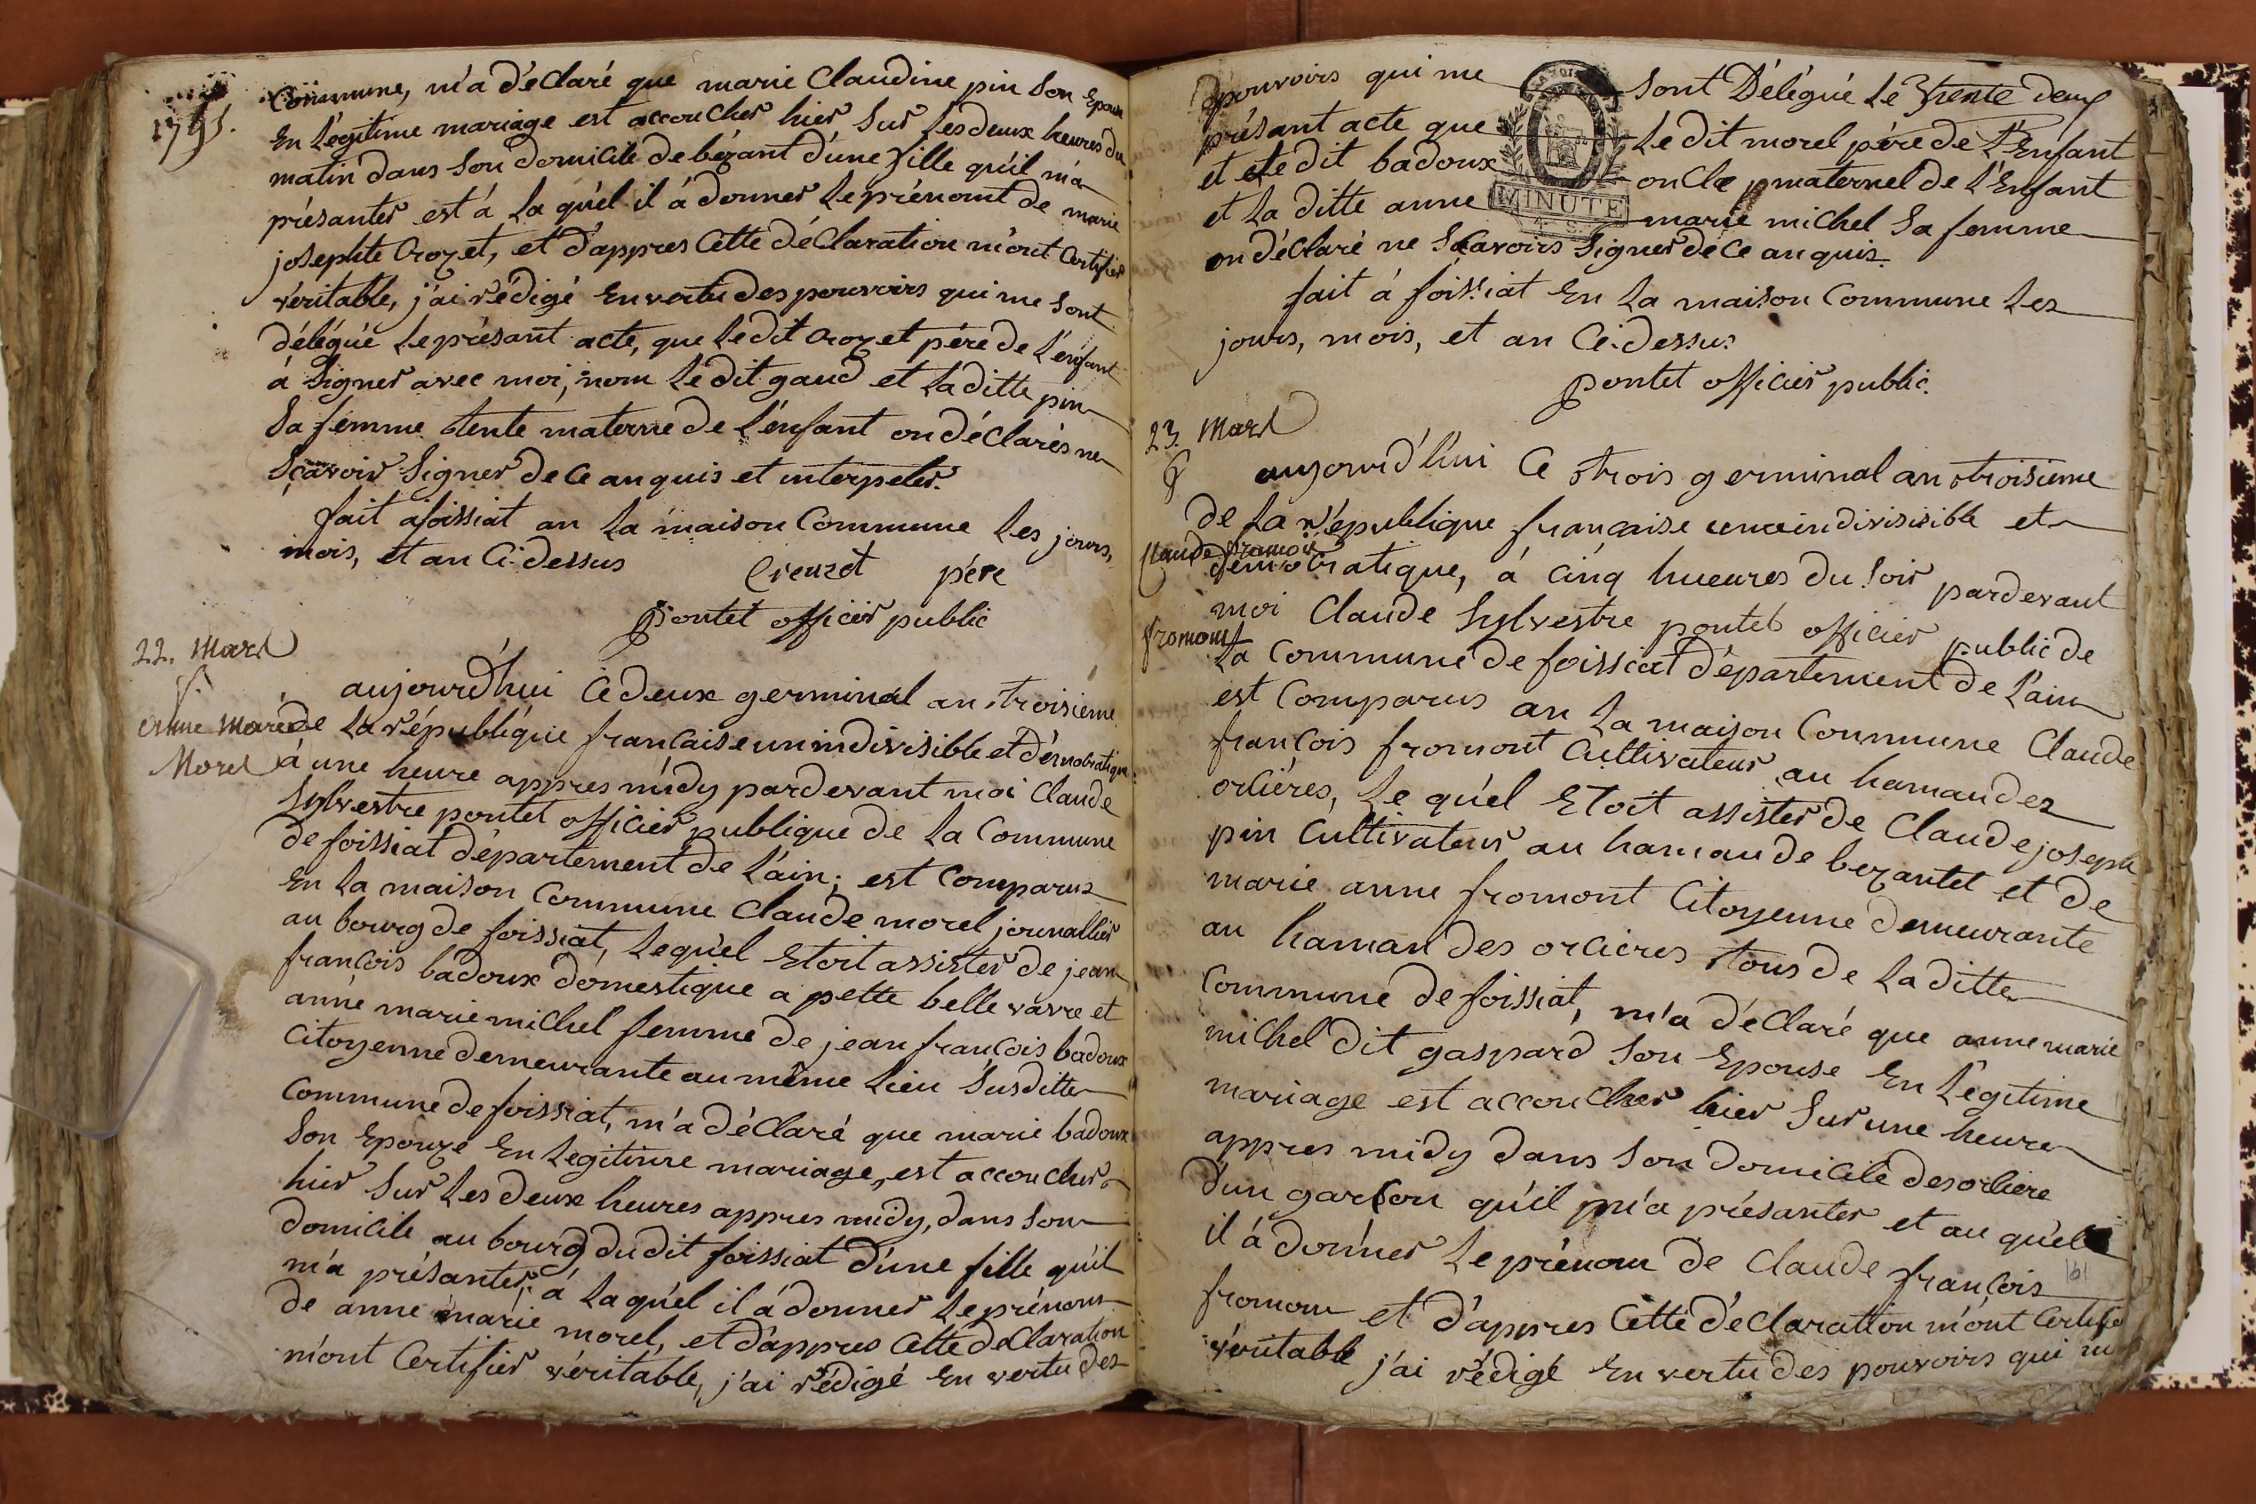 1795.
Commune, m'a déclaré que marie Claudine pin Son Epouse
En Légitime mariage est accoucher hier Sur Les deux heures du
matin dans Son domicile de bézant d'une fille qu'il m'a
présanter est á La qu'el il á donner Le prénomt de marie
josephte Crozet, et d'appres Cette déClaration m'ont Certifier
véritable, j'ai rédigé En vertu des pouvoirs qui me Sont
délégué Le présant acte, que Le dit Crozet pére de L'enfant
á Signer avec moi, nom Le dit gaud et La ditte pin
Sa femme tente materne de L'énfant on déclarés ne
Sçavoir Signer de Ce anquis et interpeler.
fait afoissiat an La maison Commune Les jours,
mois, et an Ci-dessus
Creuzet pére
Pontet officier public
22. Mars
aujourd'hui Ce deux germinal an troisieme
anne Marie
de La république francaise un indivisible et démocratique
Morel
á une heure appres midy pardevant moi Claude
Sylvestre pontet officier publique de La Commune
de foissiat département de L'ain; est Comparus
En La maison Commune Claude morel journallier
au bourg de foissiat, Lequ'el Etoit assister de jean
francois badoux domestique a pette belle vavre et
anne marie michel femme de jean francois badoux
Citoyenne demeurante au même Lieu Susditte
Commune de foissiat, m'a déClaré que marie badoux
Son Epouze En Legitime mariage, est accoucher
hier Sur Les deux heures appres midy, dans Son
domicile au bourg du dit foissiat d'une fille qu'il
m'a présanter, á La qu'el il á donner Le prénom
de anne marie morel, et d'appres Cette déClaration
m'ont Certifier véritable, j'ai rédigé En vertu des
pouvoirs qui me Sont Délégué Le Trente deux
présant acte que Le dit morel pére de L'Enfant
et Le dit badoux onCle maternel de L'Enfant
MINUTE
et La ditte anne marie michel Sa femme
on déclaré ne Scavoirs Signer de Ce anquis.
fait á foissiat En La maison Commune Les
jours, mois, et an Ci-dessus
pontet officier public.
23. Mars
aujourd'hui Ce trois germinal an troisieme
de La république francaise une indivisisible et
Claude francois
démocratique, á cinq hueures du Soir pardevant
moi Claude Sylvestre pontet officier public de
fromont
La Commune de foissiat département de L'ain
est Comparus an La maison Commune Claude
francois fromont Cultivateur au hamau des
orCiéres, Le qu'el Etoit assister de Claude joseph
pin Cultivateur au hamau de bezantet et de
marie anne fromont Citoyenne demeurante
au hamau des orCieres tous de La ditte
Commune de foissiat, m'a déClaré que anne marie
michel dit gaspard Son Epouse En Légitime
mariage est accoucher hier Sur une heure
appres midy dans Son domicile des orCiere
d'un garCon qu'il m'a présanter et au qu'el
il á donner Le prénom de Claude francois
161
fromon et d'appres Cette déclaration m'ont Certifie
véritable j'ai rédigé En vertu des pouvoirs qui me